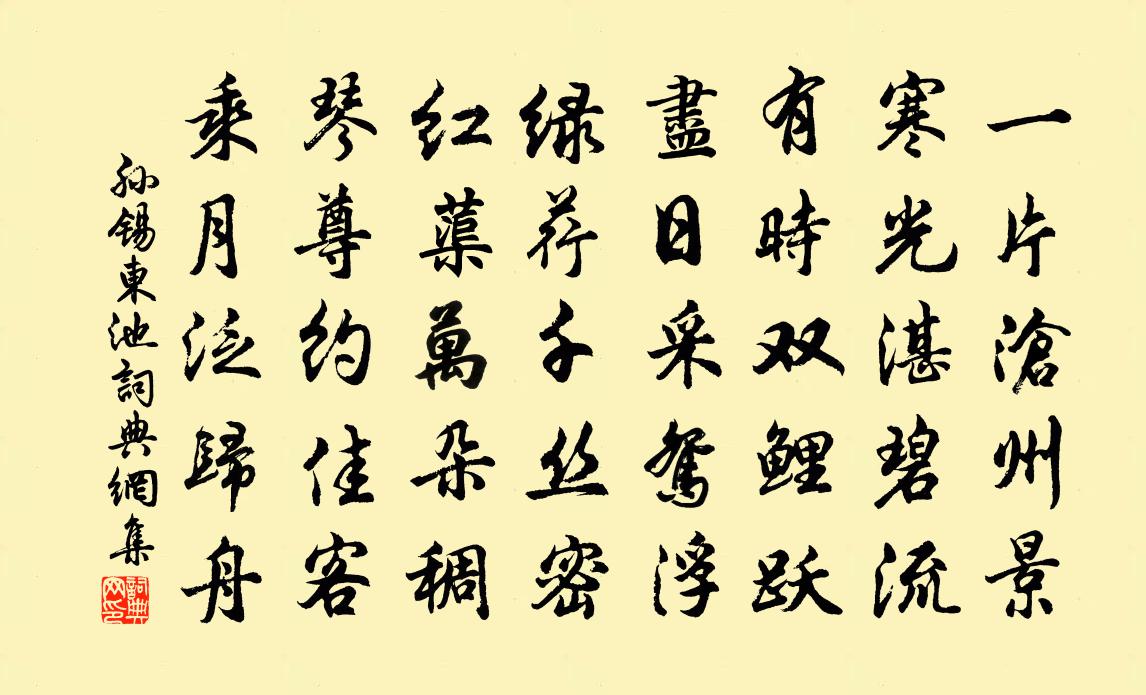 一片滄州景
寒光湛碧流
有時双鲤跃
盡日采鴛浮
绿荇千丝密
红蕖萬朵稠
琴尊约佳客
乘月泛歸舟
孙錫東池詞典網集
詞典网印